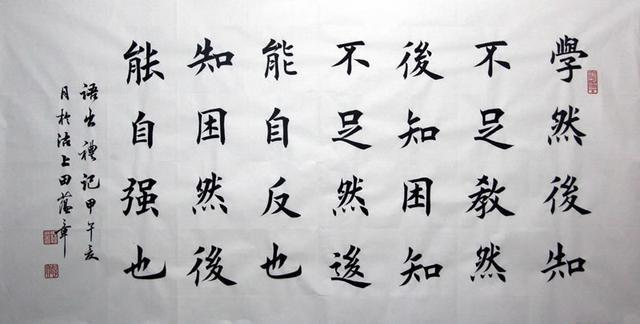 學然後知
不足教然
後知困知
不足然後
能自反也
知困然後
能自强也
語出禮記甲午亥
月於沽上田蘊章